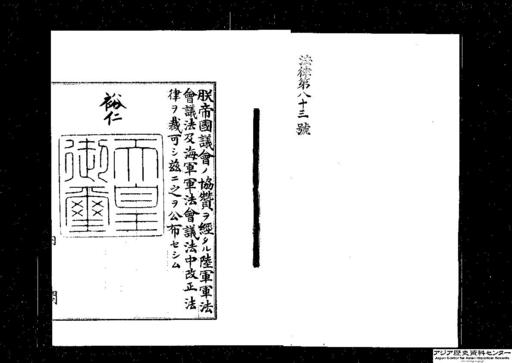 法律第八十三號
朕帝國議會ノ協贊ヲ經タル陸軍軍法
會議法及海軍軍法會議法中改正法
律ヲ裁可シ茲ニ之ヲ公布セシム
裕仁
天皇
御璽
内閣
アジア歴史資料センター
Japan Center for Asian Historical Records